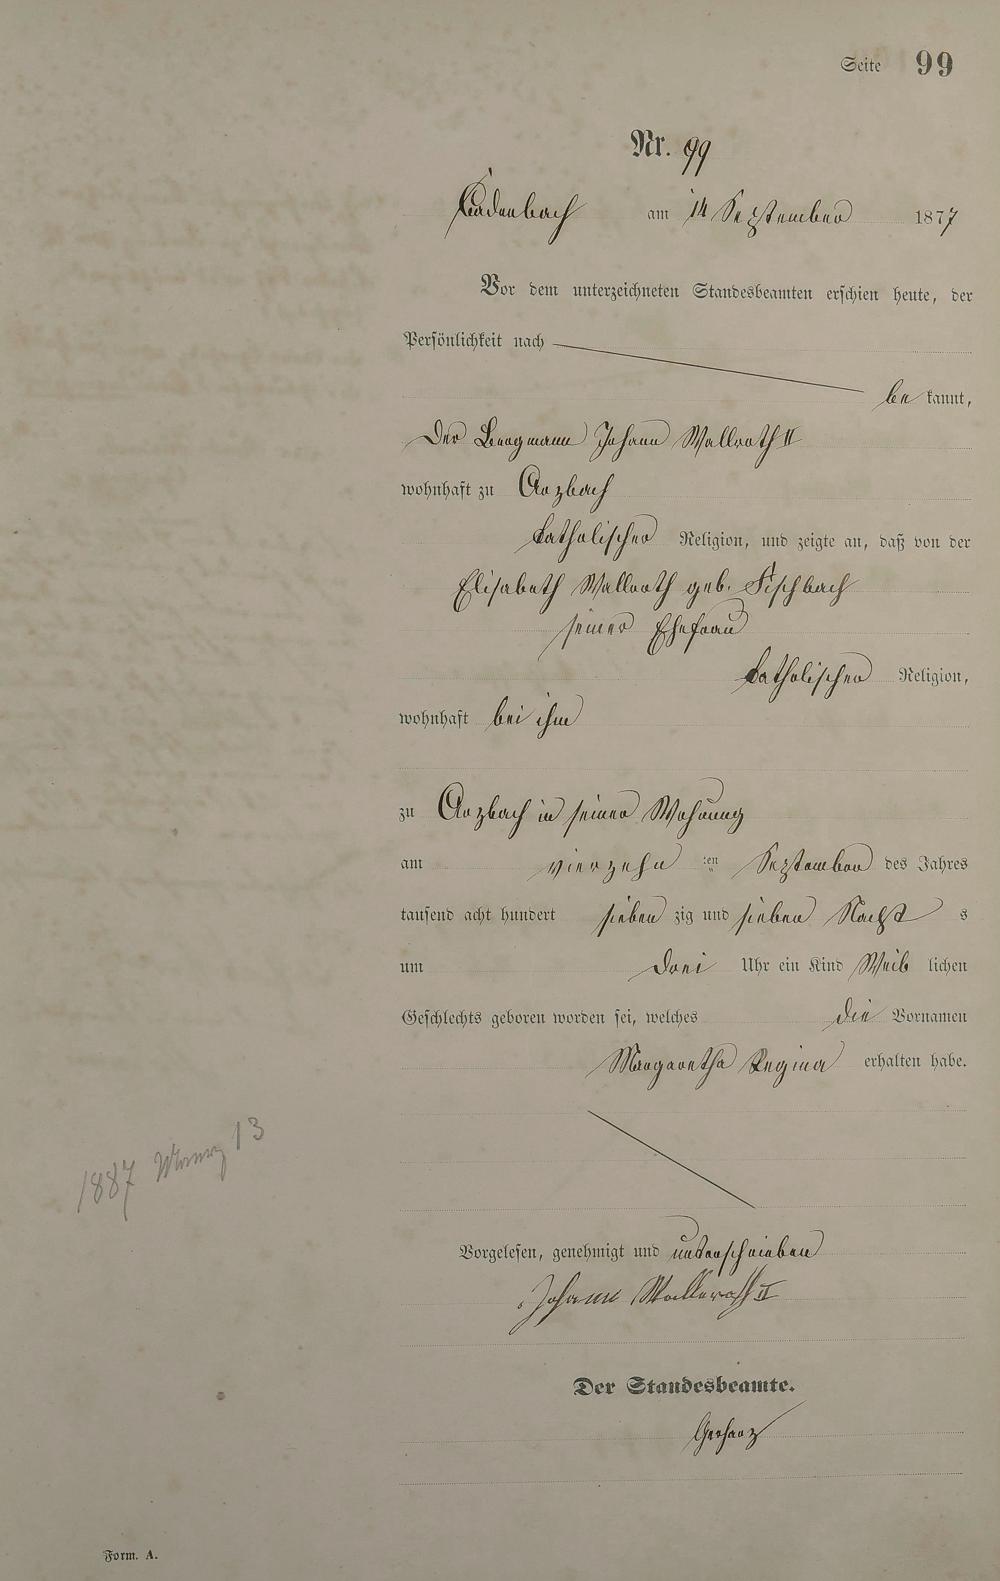 Seite 99
Nr. 99
Kadenbach am 14 September 1877
Vor dem unterzeichneten Standesbeamten erschien heute, der
Persönlichkeit nach
be kannt,
der Bergmann Johann Wallroth II
wohnhaft zu Arzbach
katholischer Religion, und zeigte an, daß von der
Elisabeth Wallroth geb. Fischbach
seiner Ehefrau
katholischer Religion,
wohnhaft bei ihm
zu Arzbach in seiner Wohnung
am vierzehn ten September des Jahres
tausend acht hundert sieben zig und sieben Nacht s
um drei Uhr ein Kind Weib lichen
Geschlechts geboren worden sei, welches die Vornamen
Margaretha Regina erhalten habe.
1887 13
Vorgelesen, genehmigt und unterschrieben
Johann Wallerath II
Der Standesbeamte.
Gerharz
Form. A.